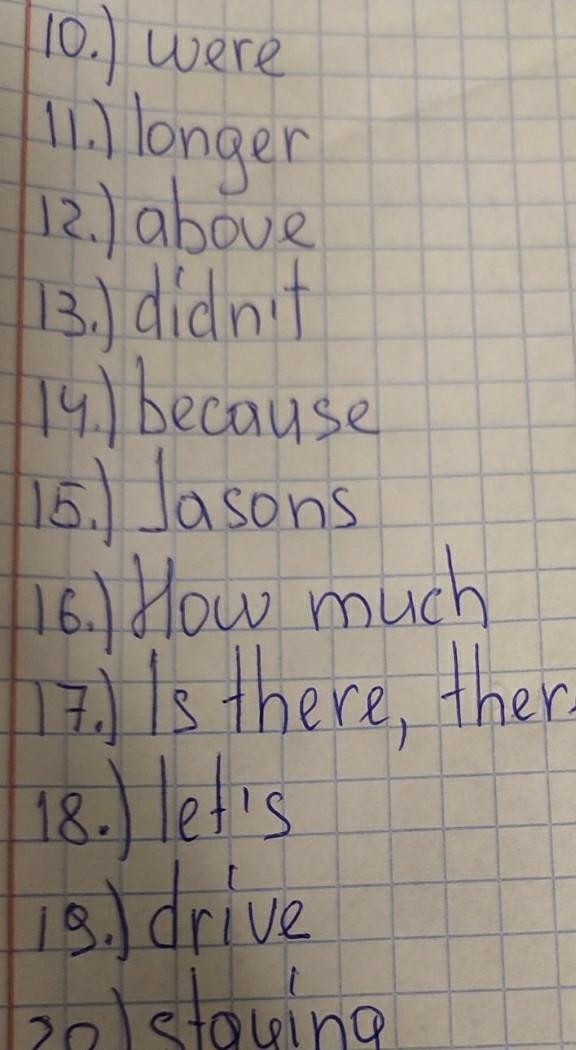 10.) were
11.) longer
12.) above
13.) didn't
14.) because
15.) Jasons
16.) How much
17.) Is there, ther
18.) let's
19.) drive
20) staying